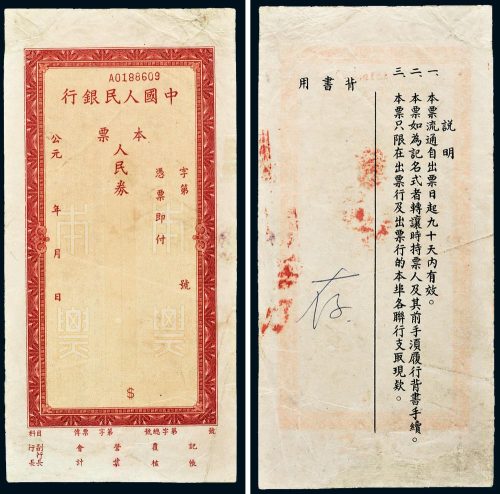 A0188609
行銀民人國中
本票
字第 號
憑票即付
人民券
公元 年 月 日
本票
$
科目 傳票 字第 號總字第 號
行長 副行長 會計 營業 覆核 記帳
背書用
說明
一、本票流通自出票日起九十天內有效。
二、本票如為記名式者轉讓時持票人及其前手須履行背書手續。
三、本票只限在出票行及出票行的本埠各聯行支取現款。
存